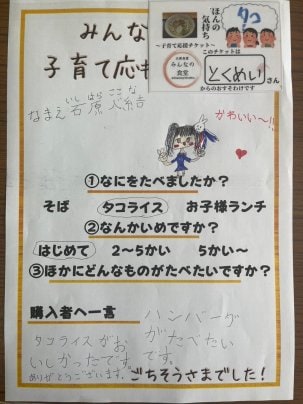 みんな
子育て応
ほんの
気持ち
タコ
～子育て応援チケット～
このチケットは
みんなの
食堂
とくめい さん
からのおすそわけです
いし はら ここ な
なまえ 石原 心結
かわいい～!!
①なにをたべましたか?
そば タコライス お子様ランチ
②なんかいめですか?
はじめて 2～5かい 5かい～
③ほかにどんなものがたべたいですか?
購入者へ一言
タコライスがお
いしかったです
ありがとうございます。
ハンバーグ
がたべたい
です。
ごちそうさまでした!